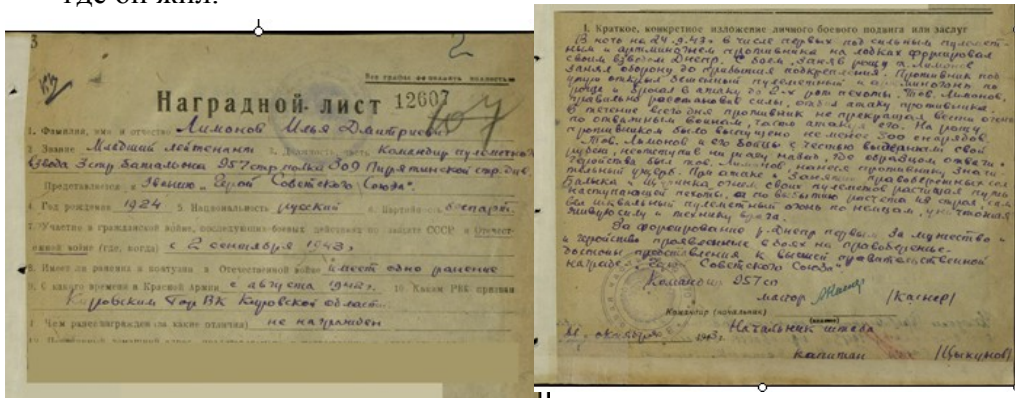 где он жил.
3
2
Все графы заполнять полностью
Наградной лист 12607
1. Фамилия, имя и отчество Лимонов Илья Дмитриевич
2. Звание Младший лейтенант 3. Должность, часть Командир пулеметного
взвода 3 стр. батальона 957 стр. полка 309 Пирятинской стр. див.
Представляется к Званию „Герой Советского Союза".
4. Год рождения 1924 5. Национальность русский 6. Партийность беспарт.
7. Участие в гражданской войне, последующих боевых действиях по защите СССР и Отечест-
венной войне (где, когда) с 2 сентября 1943 г
8. Имеет ли ранения и контузии в Отечественной войне имеет одно ранение
9. С какого времени в Красной Армии с августа 1942 г. 10. Каким РВК призван
Кировским Гор ВК Кировской области
11. Чем ранее награжден (за какие отличия) не награжден
I. Краткое, конкретное изложение личного боевого подвига или заслуг
В ночь на 24.9.43 г в числе первых под сильным пулемет-
ным и артминогнем противника на лодках форсировал
своим взводом Днепр. С боем, заняв рощу т. Лимонов
занял оборону до прибытия подкрепления. Противник
открыл бешенный пулеметный и
роще и бросал в атаку до 2-х рот пехоты. Тов. Лимонов,
правильно расстановив силы, отбил атаку противника.
В течение всего дня противник не прекращал вести огонь
по отважным воинам, часто атакуя его. На рощу
противником было выпущено не менее 500 снарядов.
Тов. Лимонов и его бойцы с честью выдержали свой
рубеж, не отступив ни шагу назад, где образцом отваги и
геройства был тов. Лимонов, нанося противнику значи-
тельный ущерб. При атаке и занятии правобережных сел
Балыка и Щучинка, огнем своих пулеметов расчищал путь
наступающей пехоты, а по выбытию расчета из строя, сам
вел шквальный пулеметный огонь по немцам, уничтожая
живую силу и технику врага.
За форсирование р. Днепр первым, за мужество
и геройство проявленные в боях на правобережье
достоин представления к высшей правительственной
награде „Героя Советского Союза"
Командир 957 сп
майор /Каснер/
Командир (начальник)
октября 1943 г.
Начальник штаба
капитан /Цыкунов/